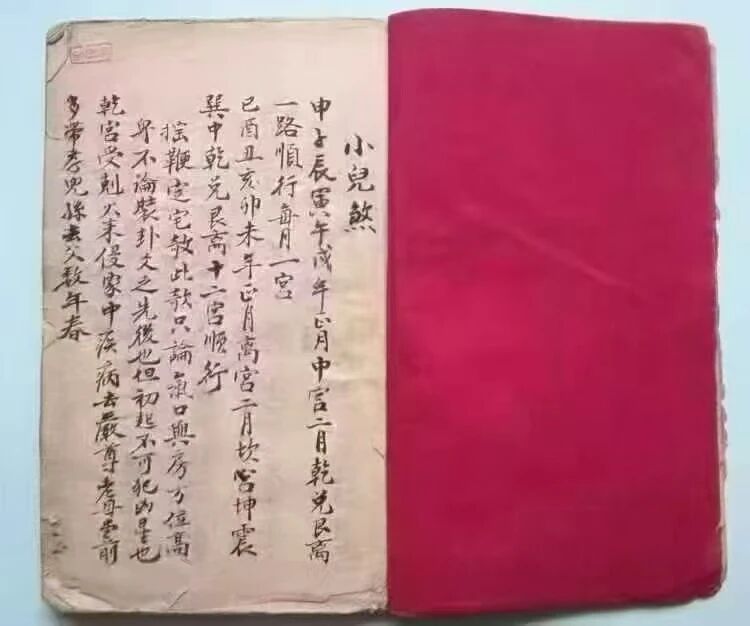 小兒煞
申子辰寅午戌年正月中宮二月乾兌艮离
一路順行每月一宮
巳酉丑亥卯未年正月离宮二月坎宮坤震
巽中乾兌艮离十二宮順行
搖鞭定宅敖此款只論氣口與房方位高
身不論裝卦爻之先後也但初起不可犯凶星也
乾宮受剋火來侵家中疾病去嚴尊老母堂前
多帶孝兒孫去父数年春